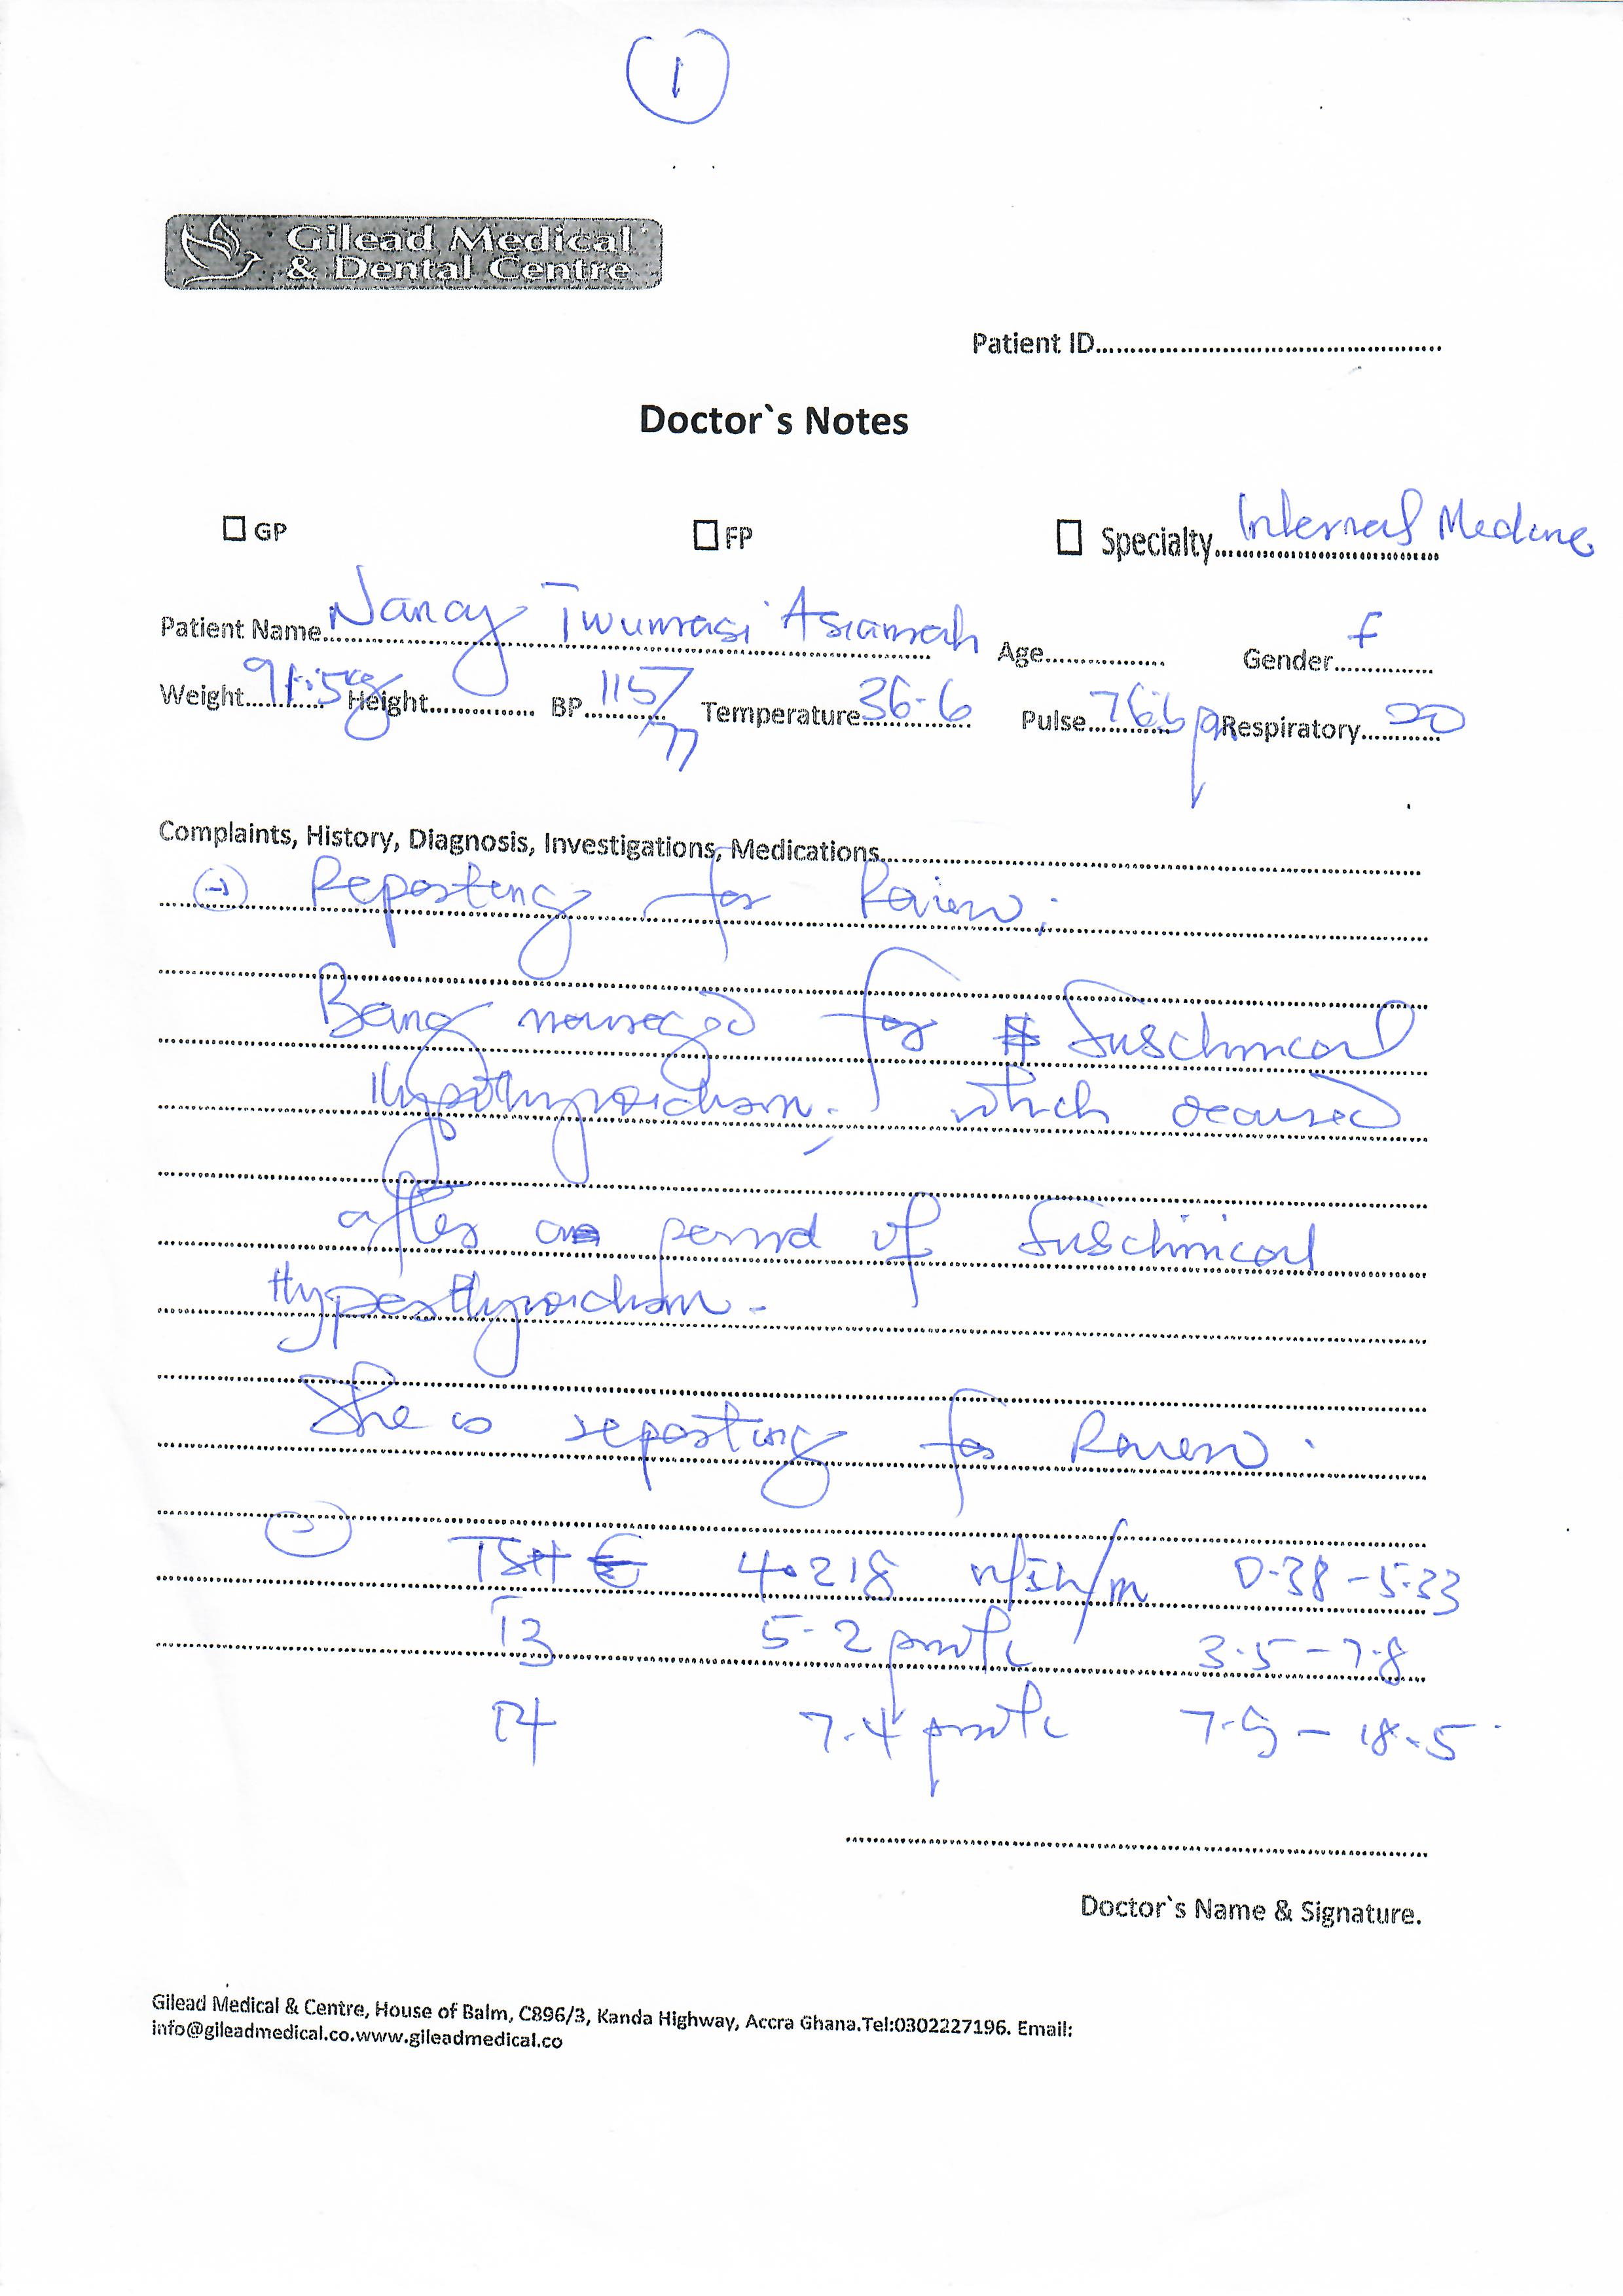 1
Gilead Medical
& Dental Centre
Patient ID
Doctor`s Notes
GP FP Specialty Internal Medicine
Patient Name Nancy Twumasi Asiamah Age Gender F
Weight 91.5kg Height BP 115/77 Temperature 36.6 Pulse 76bpm Respiratory 20
Complaints, History, Diagnosis, Investigations, Medications
Reporting for Review;
Being managed for Subclinical
Hypothyroidism, which occurred
after a period of Subclinical
Hyperthyroidism.
She is reporting for Review.
TSH 4.218 0.38 - 5.33
T3 5.2 pmol/L 3.5 - 7.8
T4 7.4 pmol/L 7.5 - 18.5
Doctor`s Name & Signature.
Gilead Medical & Centre, House of Balm, C896/3, Kanda Highway, Accra Ghana.Tel:0302227196. Email:
info@gileadmedical.co.www.gileadmedical.co